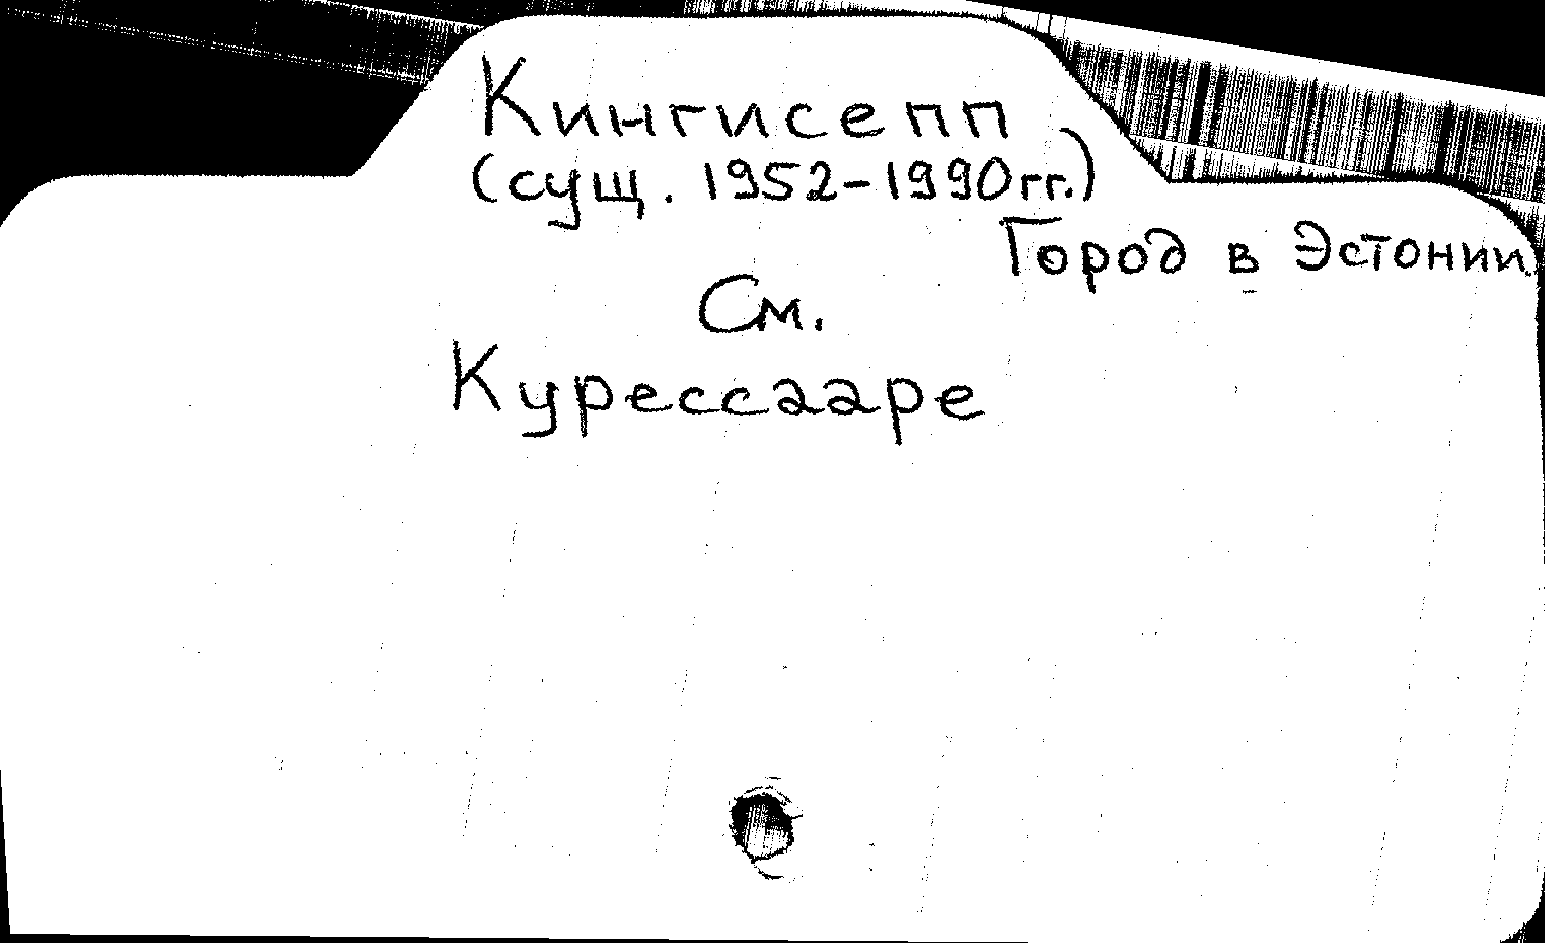 Кингисепп
(сущ. 1952-1990гг.)
Город в Эстонии
См.
Курессааре